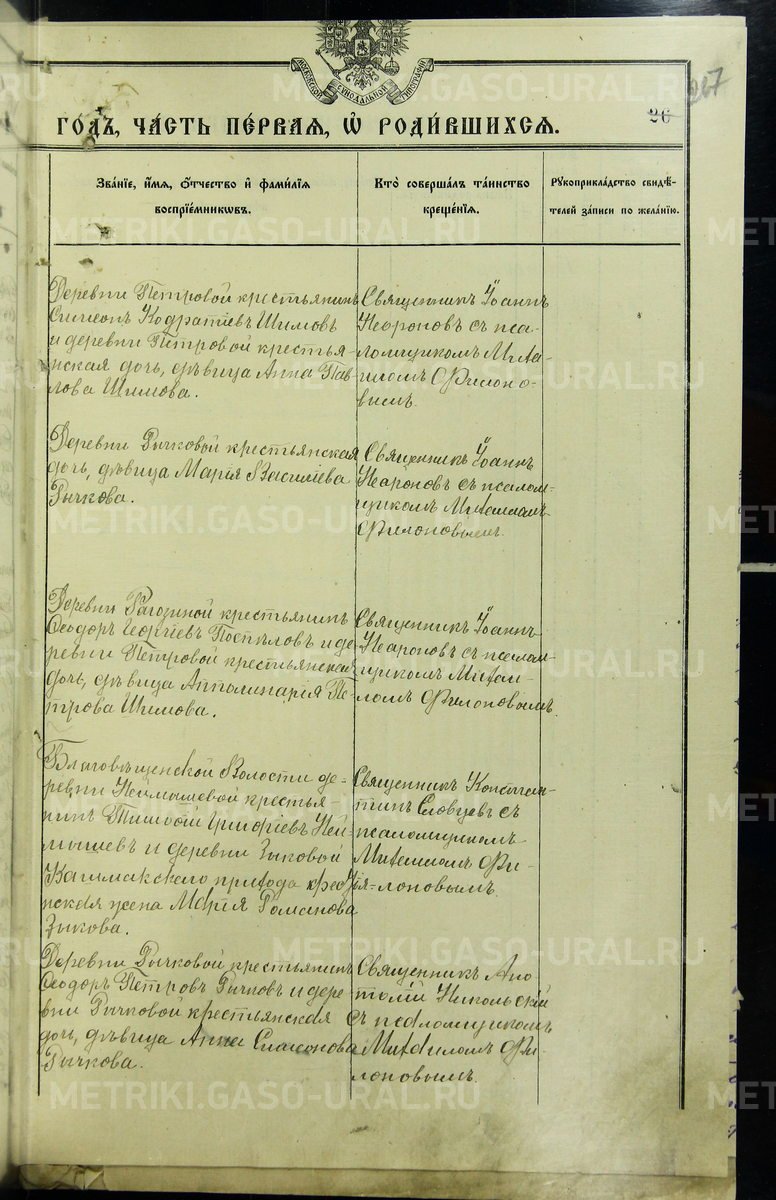 МОСКОВСКОЙ СѴНОДАЛЬНОЙ ТИПОГРАФІИ
267
26
ГО́ДЪ, ЧА́СТЬ ПЕ́РВАЯ, Ѡ҆ РОДИ́ВШИХСЯ.
Зва́нїе, и҆́мя, ѻ҆́тчество и҆ фами́лїя
воспрїе́мникѡвъ.
Кто̀ соверша́лъ та́инство
креще́нїя.
Рꙋкоприкла́дство свидѣ́-
телей за́писи по жела́нїю.
Деревни Петровой крестьянинъ
Симеонъ Кодратіевъ Шимовъ
и деревни Петровой крестья-
нская дочь, дѣвица Анна Пав-
лова Шимова.
Священникъ Іоаннъ
Неароновъ съ пса-
ломщикомъ Миха-
иломъ Филоно-
вымъ.
Деревни Рычковой крестьянская
дочь, дѣвица Марія Васильева
Рычкова.
Священникъ Іоаннъ
Неароновъ съ псалом-
щикомъ Михаиломъ
Филоновымъ.
Деревни Рагозиной крестьянинъ
Ѳеодоръ Георгіевъ Поспѣловъ и де-
ревни Петровой крестьянская
дочь, дѣвица Апполинарія Пе-
трова Шимова.
Священникъ Іоаннъ
Неароновъ съ псалом-
щикомъ Михаи-
ломъ Филоновымъ.
Благовѣщенской Волости де-
ревни Неймышевой крестья-
нинъ Тимоѳей Григоріевъ Ней-
мышевъ и деревни Зыковой
прихода крестья-
нская жена Марія Романова
Зыкова.
Священникъ Констан-
тинъ Словцевъ съ
псаломщикомъ
Михаиломъ Фи-
лоновымъ.
Деревни Рычковой крестьянинъ
Ѳеодоръ Петровъ Рычковъ и дере-
вни Рычковой крестьянская
дочь, дѣвица Анна Симеонова
Рычкова.
Священникъ Ана-
толій Никольскій
съ псаломщикомъ
Михаиломъ Фи-
лоновымъ.
METRIKI.GASO-URAL.RU